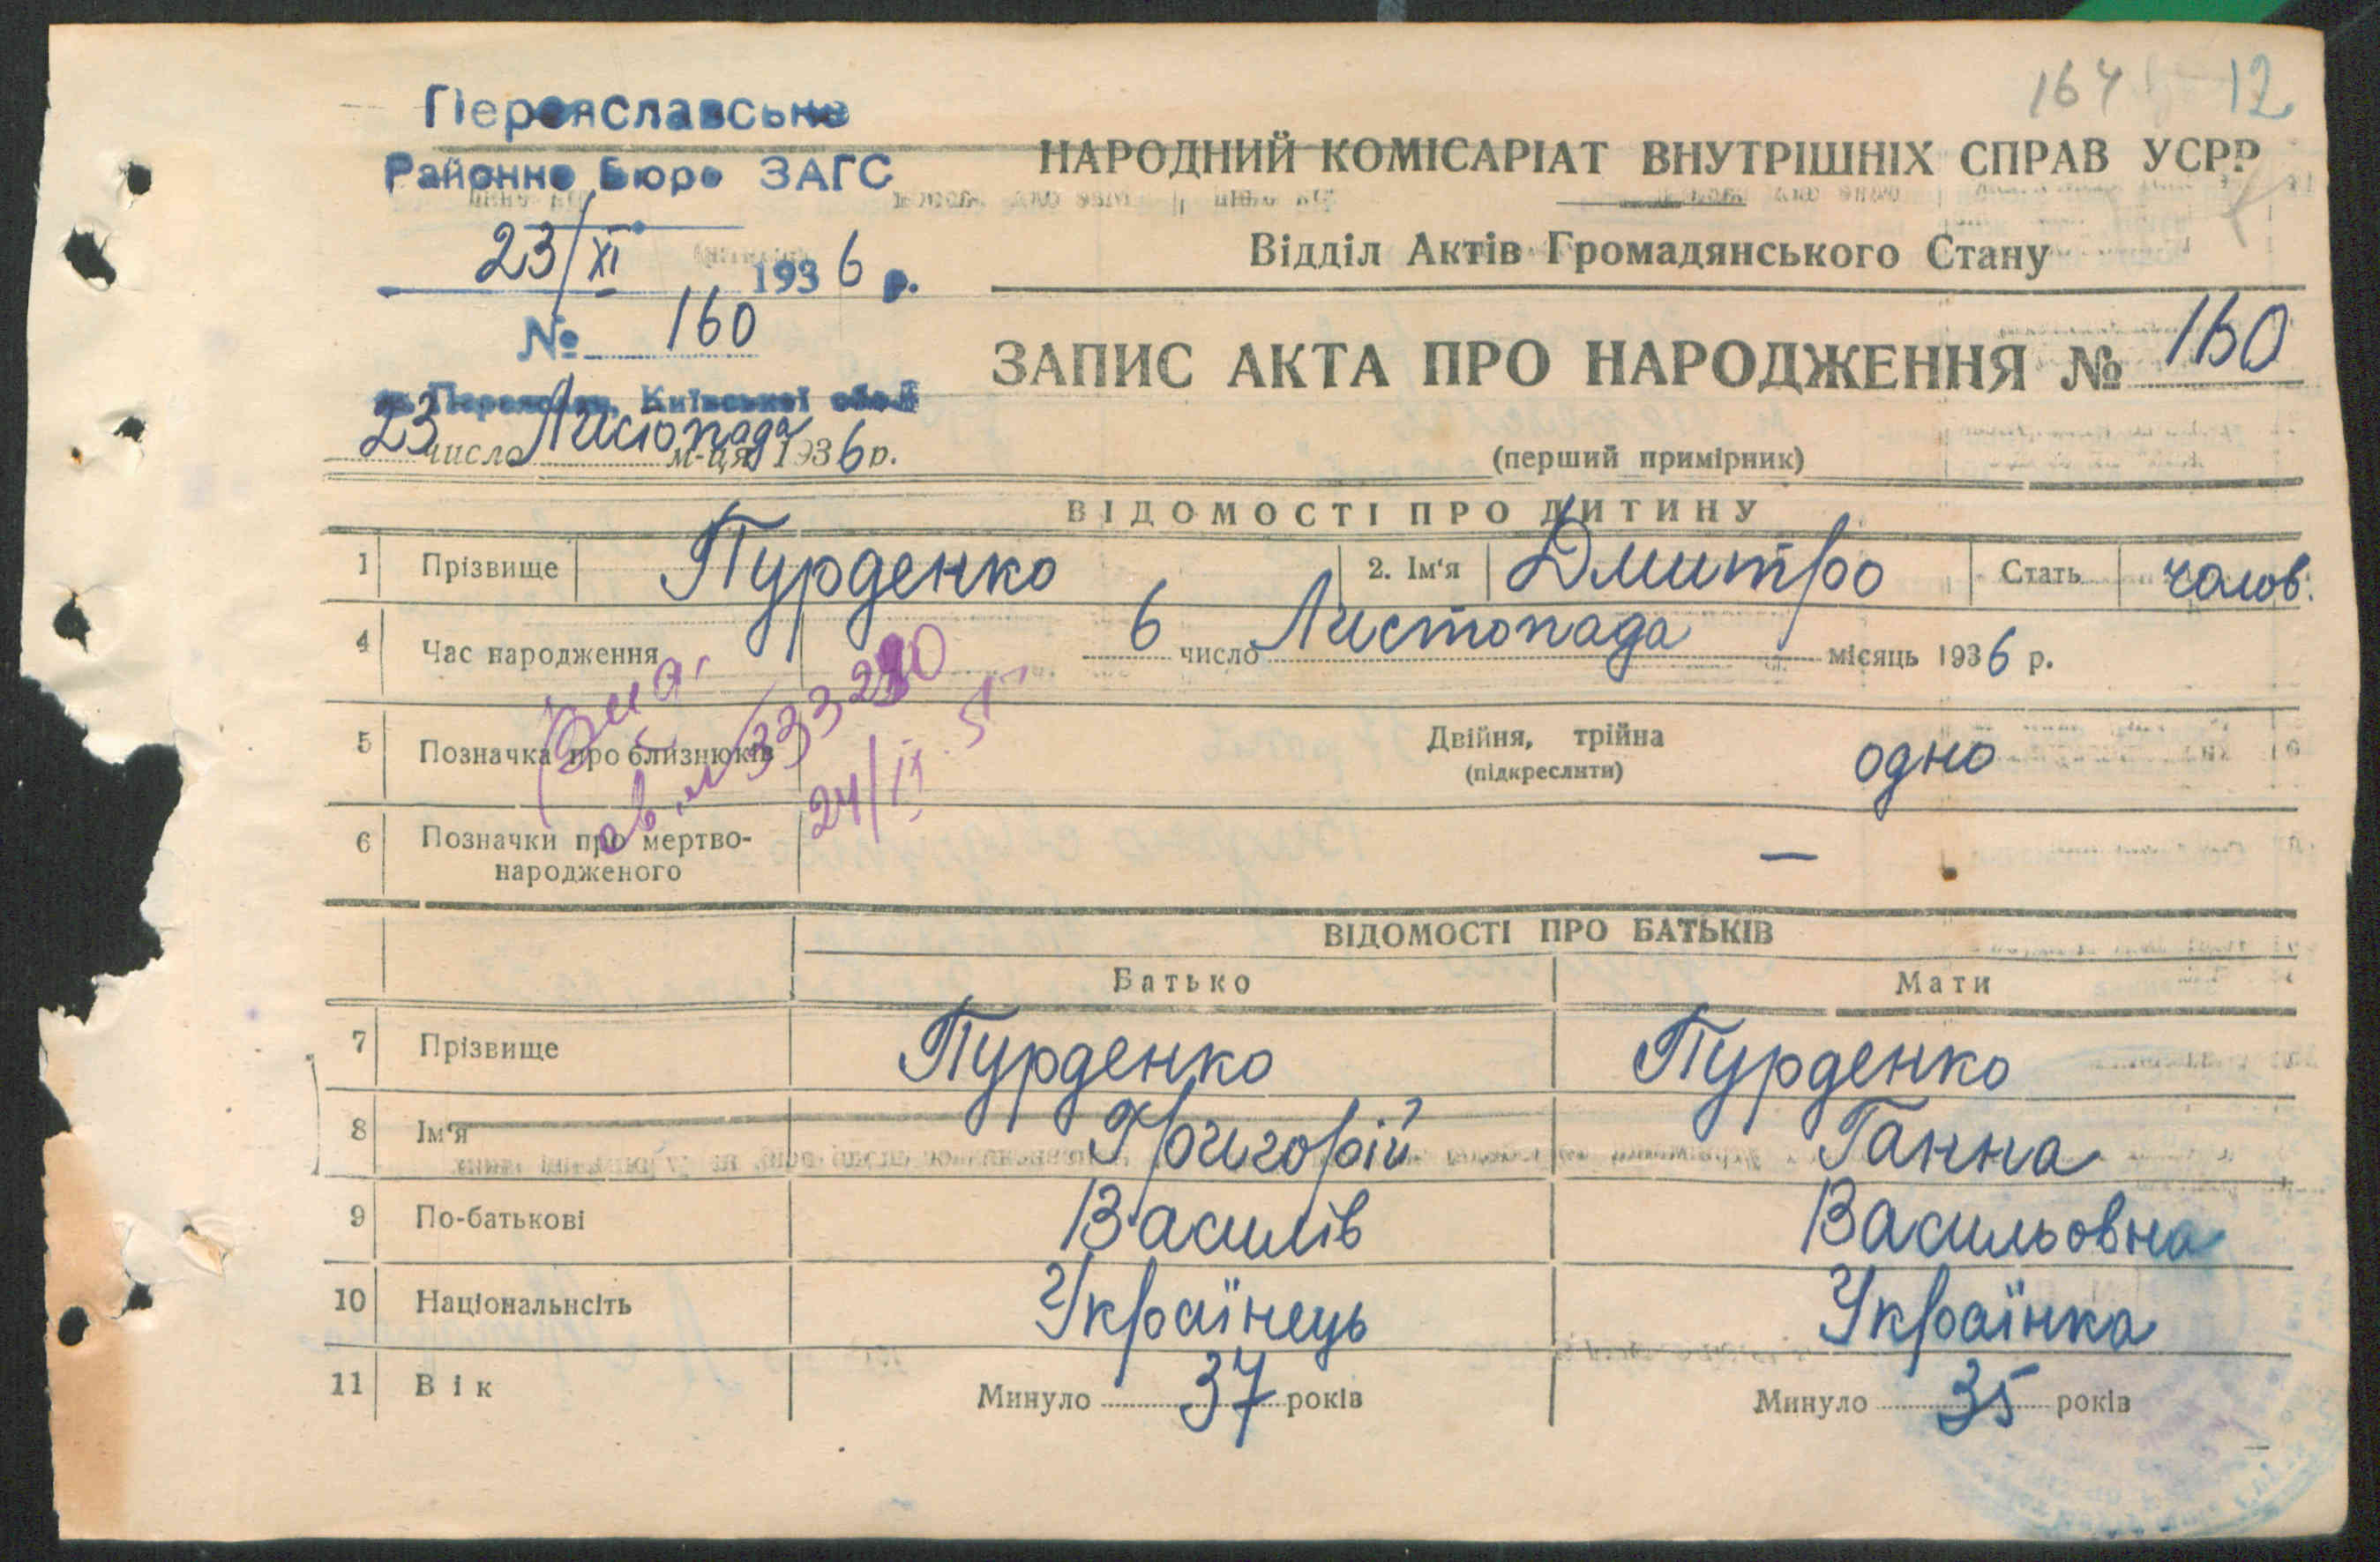 164 12
Переяславське
Районне Бюро ЗАГС
23/XI 1936 р.
№ 160
м. Переяслав, Київської обл.
23 число Листопада м-ця 1936 р.
НАРОДНИЙ КОМІСАРІАТ ВНУТРІШНІХ СПРАВ УСРР
Відділ Актів Громадянського Стану
ЗАПИС АКТА ПРО НАРОДЖЕННЯ № 160
(перший примірник)
ВІДОМОСТІ ПРО ДИТИНУ
1 Прізвище Пурденко 2. Ім'я Дмитро Стать чолов.
4 Час народження 6 число Листопада місяць 1936 р.
5 Позначка про близнюків Двійня, трійна (підкреслити) одно
24/IX 51
6 Позначки про мертво-
народженого —
ВІДОМОСТІ ПРО БАТЬКІВ
Батько Мати
7 Прізвище Пурденко Пурденко
8 Ім'я Григорій Ганна
9 По-батькові Василів Васильовна
10 Національнсіть Українець Українка
11 Вік Минуло 37 років Минуло 35 років